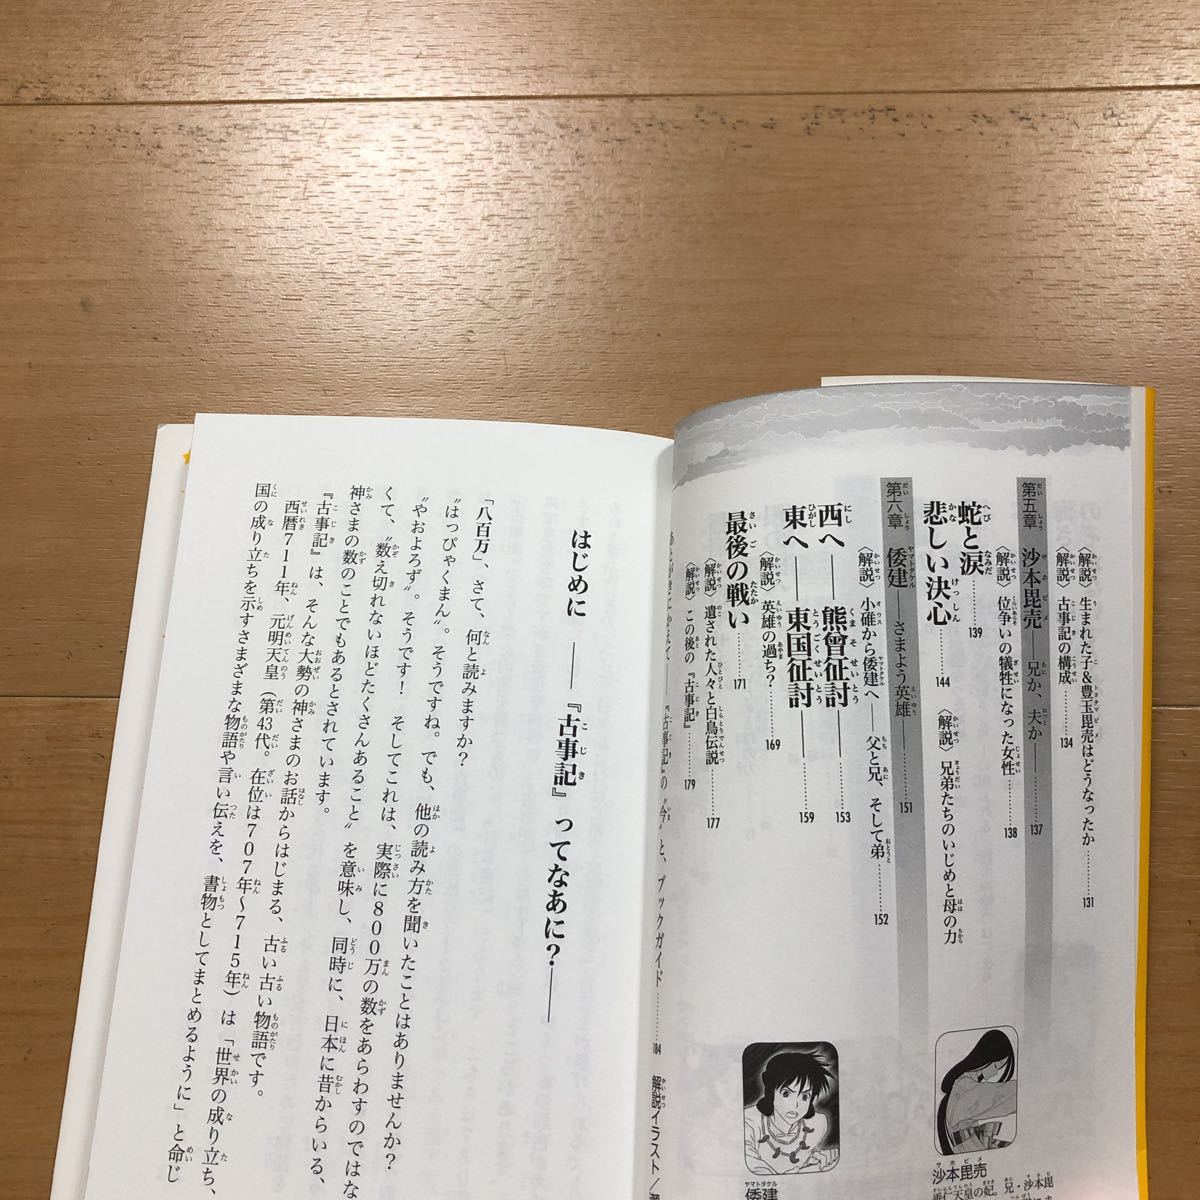 〈解説〉生まれた子&豊玉毘売はどうなったか………131
〈解説〉古事記の構成………134
第五章 沙本毘売――兄か、夫か――137
〈解説〉位争いの犠牲になった女性………138
蛇と涙………139
悲しい決心………144
〈解説〉兄弟たちのいじめと母の力
第六章 倭建――さまよう英雄――151
〈解説〉小碓から倭建へ――父と兄、そして弟………152
西へ――熊曾征討………153
東へ――東国征討………159
〈解説〉英雄の過ち?………169
最後の戦い………171
〈解説〉遺された人々と白鳥伝説………177
〈解説〉この後の『古事記』………179
あとがきにかえて――『古事記』の“今”と、ブックガイド………184
解説イラスト/
沙本毘売
垂仁天皇の妃。兄・沙本毘
倭建
はじめに――『古事記』ってなあに?――
「八百万」、さて、何と読みますか?
“はっぴゃくまん”。そうですね。でも、他の読み方を聞いたことはありませんか?
“やおよろず”。そうです! そしてこれは、実際に800万の数をあらわすのではな
くて、“数え切れないほどたくさんあること”を意味し、同時に、日本に昔からいる、
神さまの数のことでもあるとされています。
『古事記』は、そんな大勢の神さまのお話からはじまる、古い古い物語です。
西暦711年、元明天皇(第43代。在位は707年〜715年)は「世界の成り立ち、
国の成り立ちを示すさまざまな物語や言い伝えを、書物としてまとめるように」と命じ